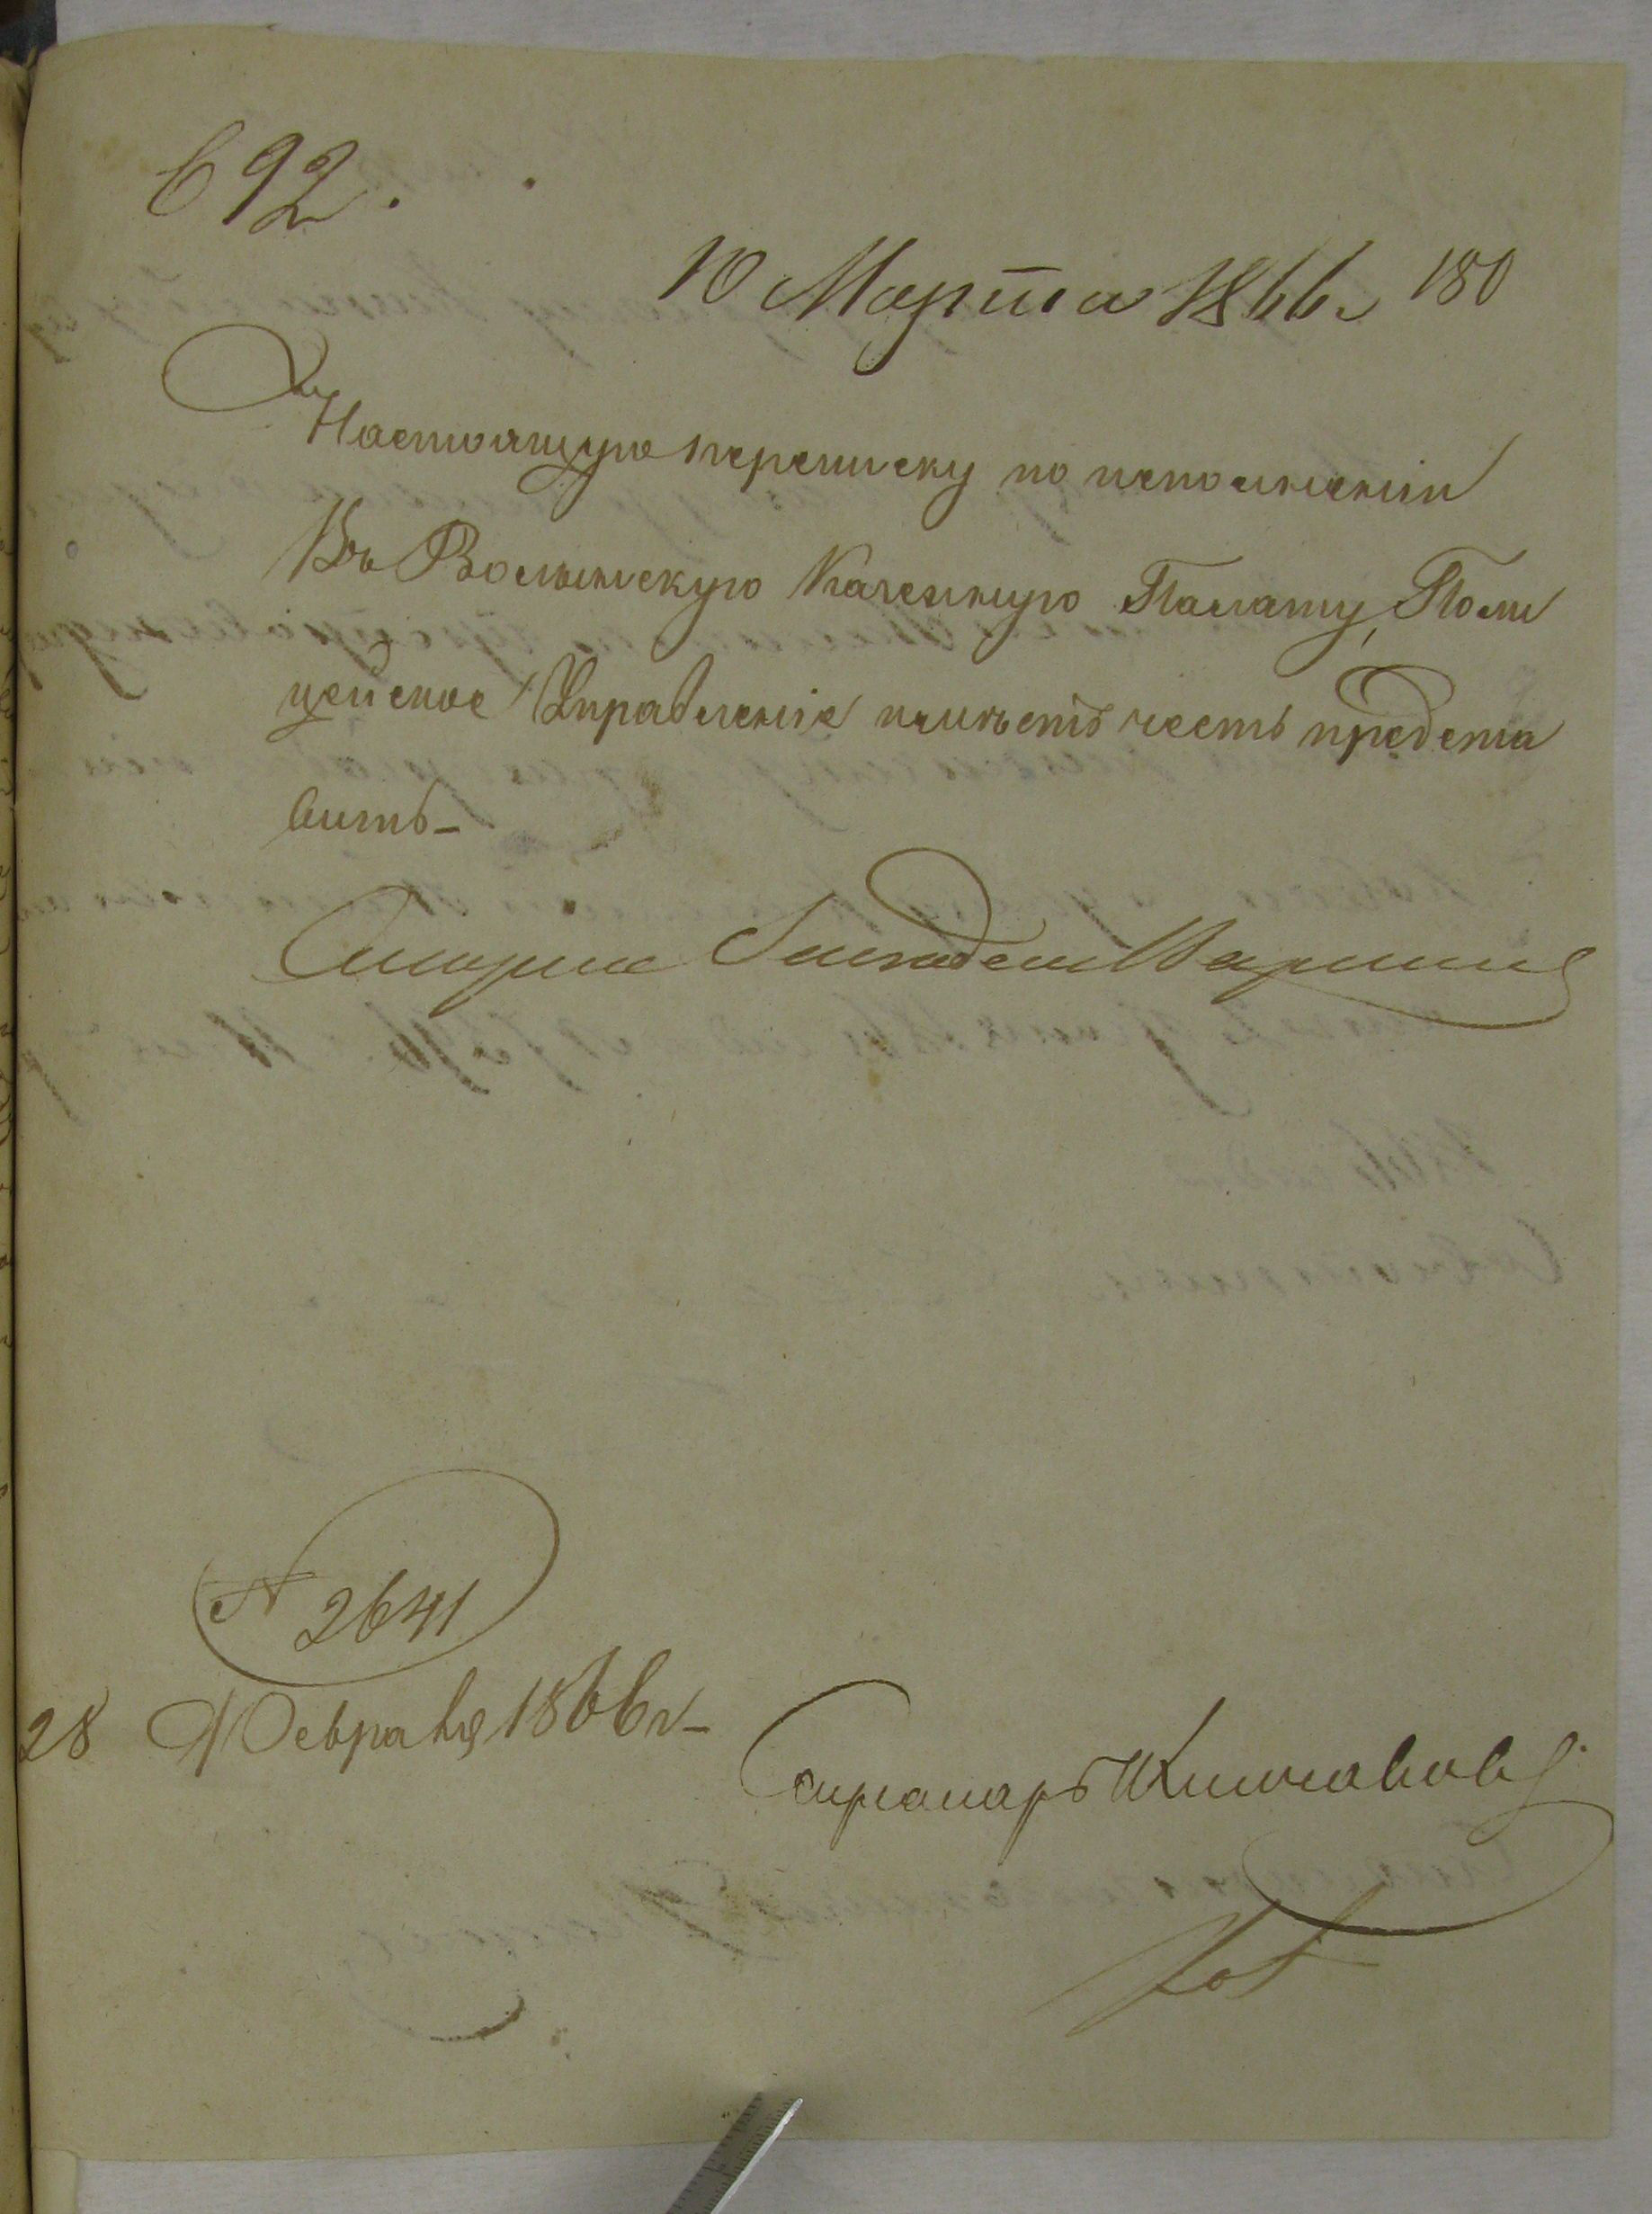 692.
10 Марта 1866 г. 180
Настоящую переписку по исполненіи
Въ Волынскую Казенную Палату, Поли
цейское Управленіе имѣетъ честь предста
вить-
№ 2641
28 Февраля 1866 г-